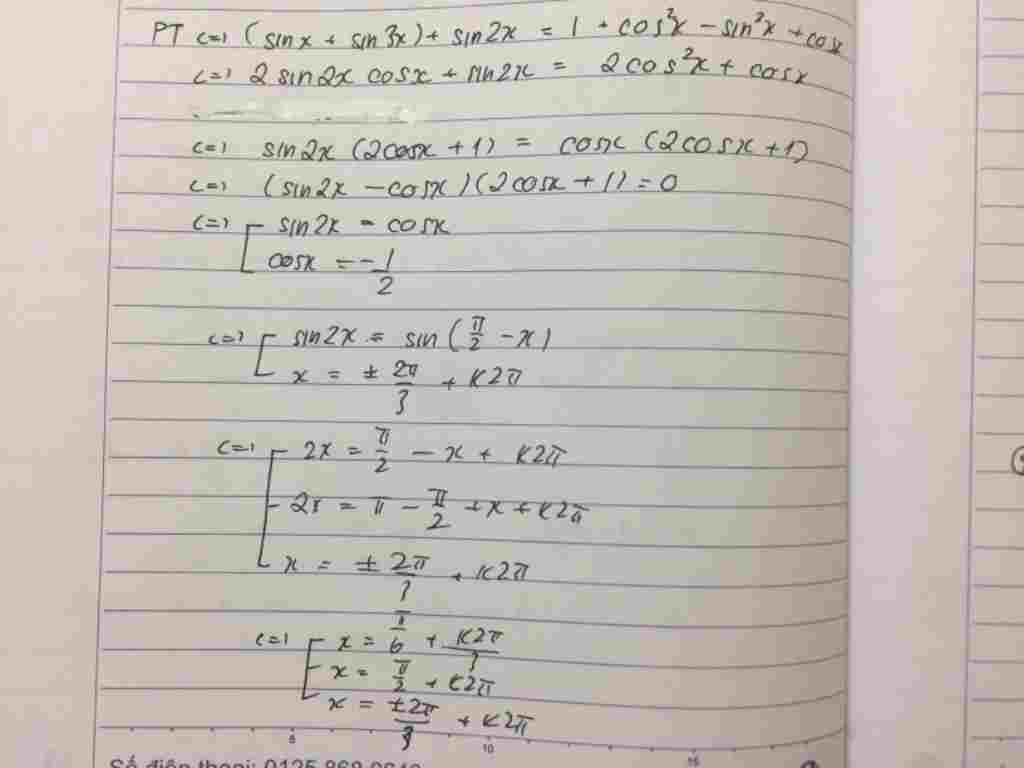 PT <=> (sinx + sin3x) + sin2x = 1 + cos²x - sin²x + cosx
<=> 2 sin2x cosx + sin2x = 2cos²x + cosx
<=> sin2x (2cosx + 1) = cosx (2cosx + 1)
<=> (sin2x - cosx)(2cosx + 1) = 0
<=> [ sin2x = cosx
cosx = -1/2
<=> [ sin2x = sin(π/2 - x)
x = ± 2π/3 + k2π
<=> [ 2x = π/2 - x + k2π
2x = π - π/2 + x + k2π
x = ± 2π/3 + k2π
<=> [ x = π/6 + k2π/3
x = π/2 + k2π
x = ±2π/3 + k2π
5 10 15
Số điện thoại: 0125 868